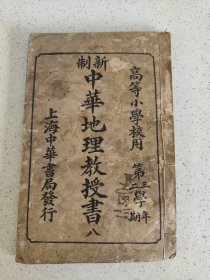 高等小學校用
第三學年
第二學期
新制
中華地理教授書 八
上海中華書局發行